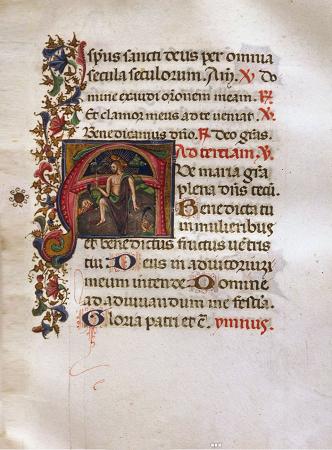 s̄pūs sancti deus per omnia
secula seculorum. Am̄. ℣. Do
mine exaudi oronem meam. ℟.
Et clamor meus ad te veniat. ℣.
Benedicamus dn̄o. ℟. Deo gr̄as.
Ad tertiam. ℣.
Ave maria gra
plena dn̄s tecū.
Benedicta tu
in mulieribus
et benedictus fructus ventris
tui Deus in adiutorium
meum intende Domine
ad adiuvandum me festīa.
Gloria patri et c̄. ymnus.